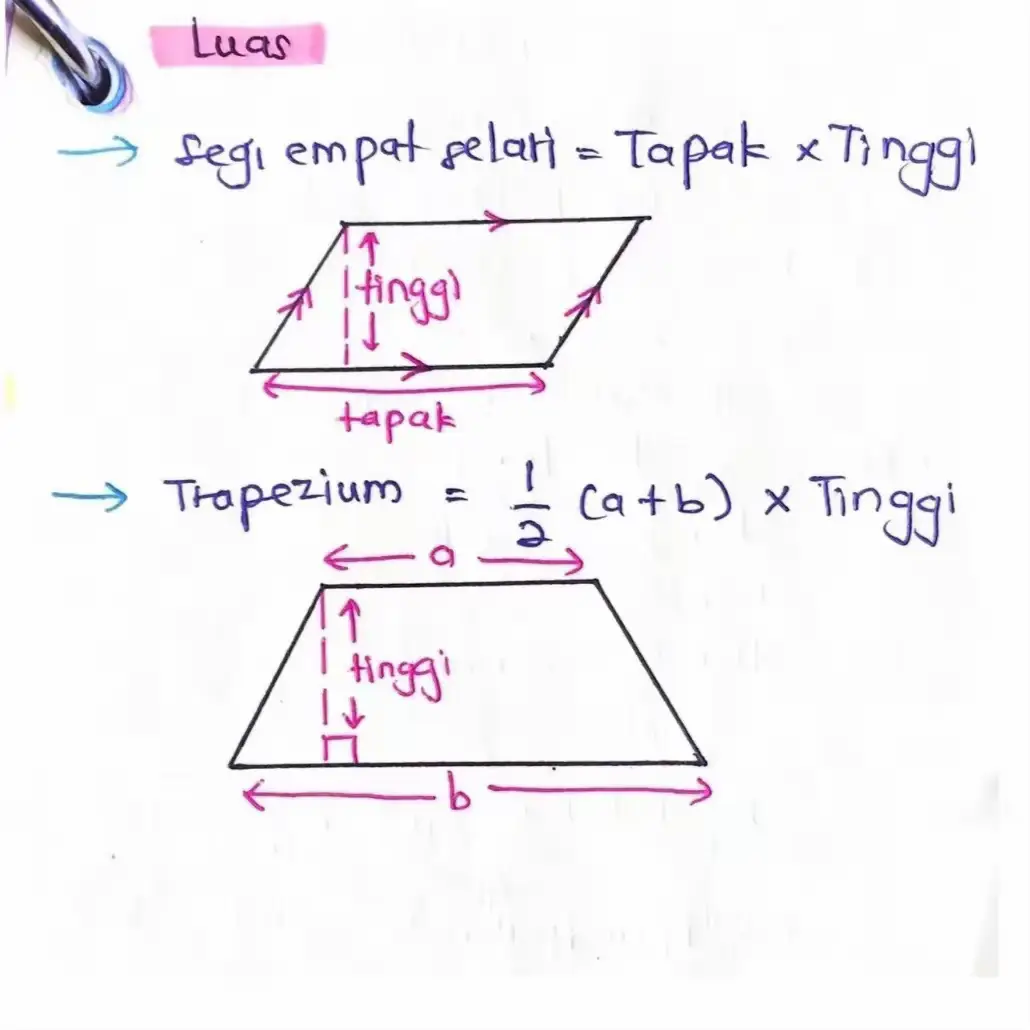 Luas
→ segi empat selari = Tapak × Tinggi
tinggi
tapak
→ Trapezium = 1/2 (a+b) × Tinggi
a
tinggi
b